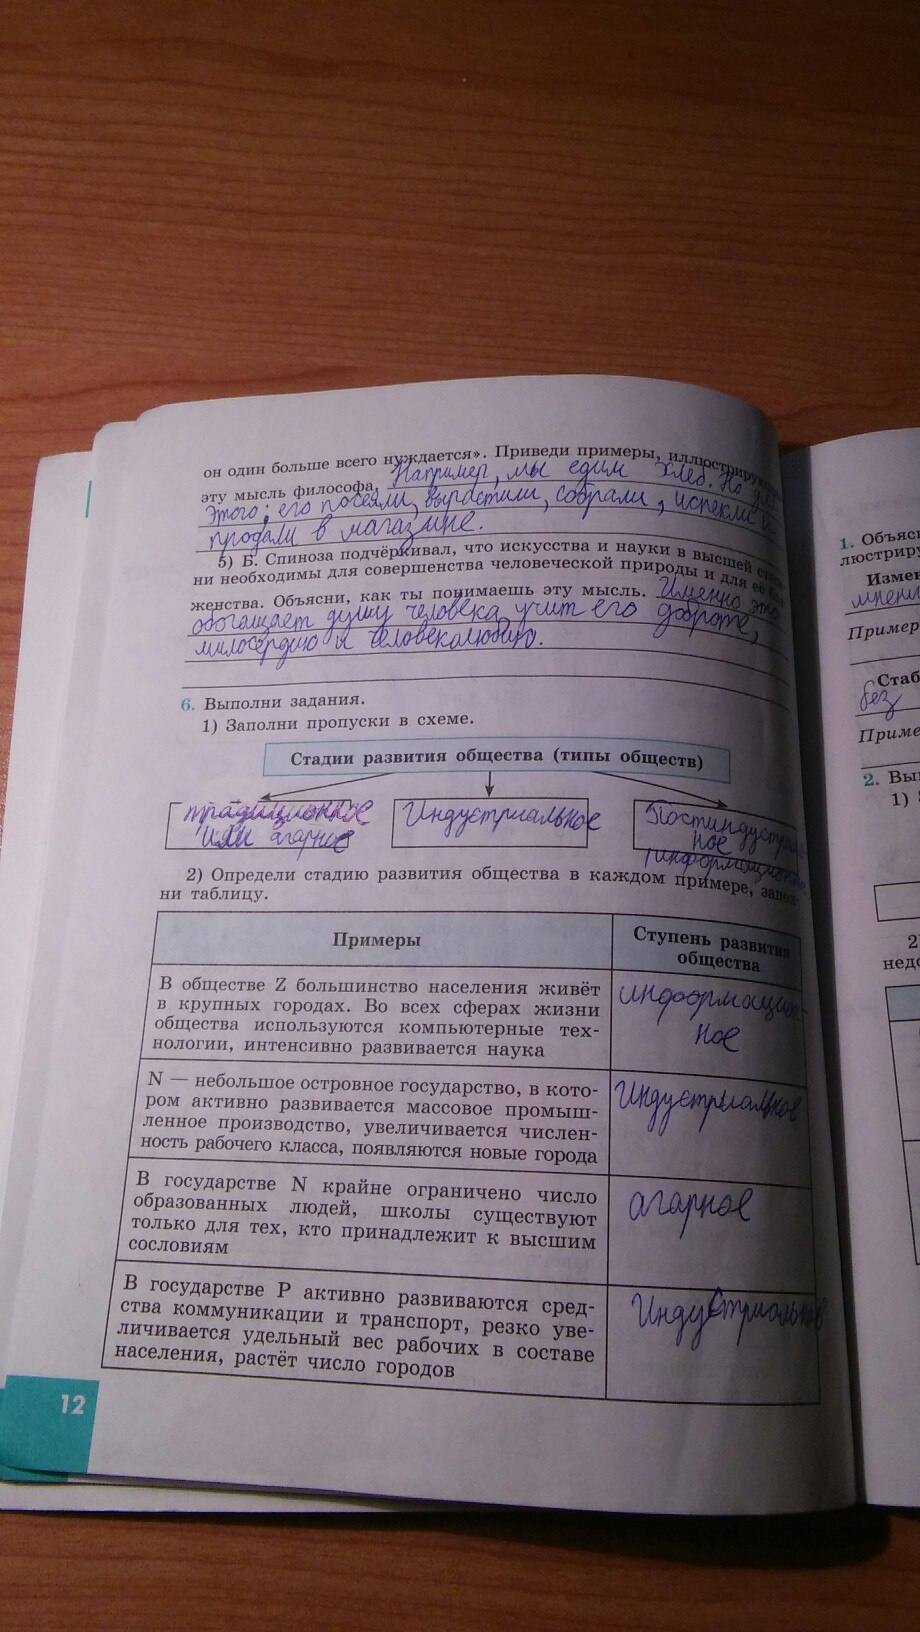 он один больше всего нуждается». Приведи примеры, иллюстрирующие
эту мысль философа. Например, мы едим хлеб. Но до
этого: его посеяли, вырастили, собрали, испекли и
продали в магазине.
5) Б. Спиноза подчёркивал, что искусства и науки в высшей степе-
ни необходимы для совершенства человеческой природы и для её бла-
женства. Объясни, как ты понимаешь эту мысль. Именно это
обогащает душу человека, учит его доброте,
милосердию и человеколюбию.
6. Выполни задания.
1) Заполни пропуски в схеме.
Стадии развития общества (типы обществ)
традиционное
или агарное
Индустриальное
Постиндустриаль
ное
(информационное
2) Определи стадию развития общества в каждом примере, запол-
ни таблицу.
Примеры
Ступень развития
общества
В обществе Z большинство населения живёт
в крупных городах. Во всех сферах жизни
общества используются компьютерные тех-
нологии, интенсивно развивается наука
информацион-
ное
N — небольшое островное государство, в кото-
ром активно развивается массовое промыш-
ленное производство, увеличивается числен-
ность рабочего класса, появляются новые города
Индустриальное
В государстве N крайне ограничено число
образованных людей, школы существуют
только для тех, кто принадлежит к высшим
сословиям
агарное
В государстве P активно развиваются сред-
ства коммуникации и транспорт, резко уве-
личивается удельный вес рабочих в составе
населения, растёт число городов
Индустриальное
12
1. Объясн
люстриру
Измен
мнени
Пример
Стаб
без
Приме
2. Вып
1)
2)
недо